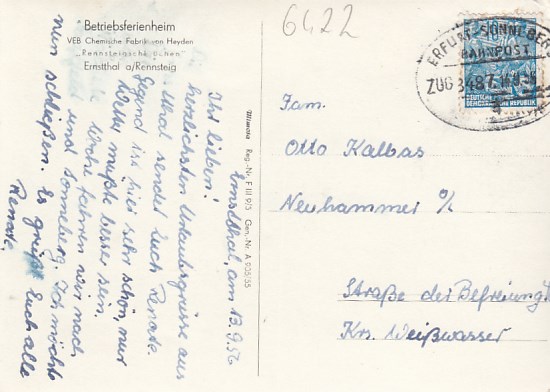 6422
Betriebsferienheim
VEB Chemische Fabrik von Heyden
„Rennsteinschlößchen"
Ernstthal a/Rennsteig
ERFURT-SONNEBERG
BAHNPOST
ZUG
DEUTSCHE
DEMOKRATISCHE REPUBLIK
Ernstthal, am 13.9.56
Ihr Lieben!
Die herzlichsten Urlaubsgrüsse aus
sendet Euch Renate.
Gegend ist hier sehr schön, nur
müßte besser sein.
Woche fahren wir nach
und Sonneberg. Ich möchte
nun schließen. Es grüßt Euch alle
Renate.
Reg.-Nr. F III 9/3 Gen.-Nr. A 935/55
Fam.
Otto Kalbas
Neuhammer o/
Straße der Befreiung
Krs. Weißwasser